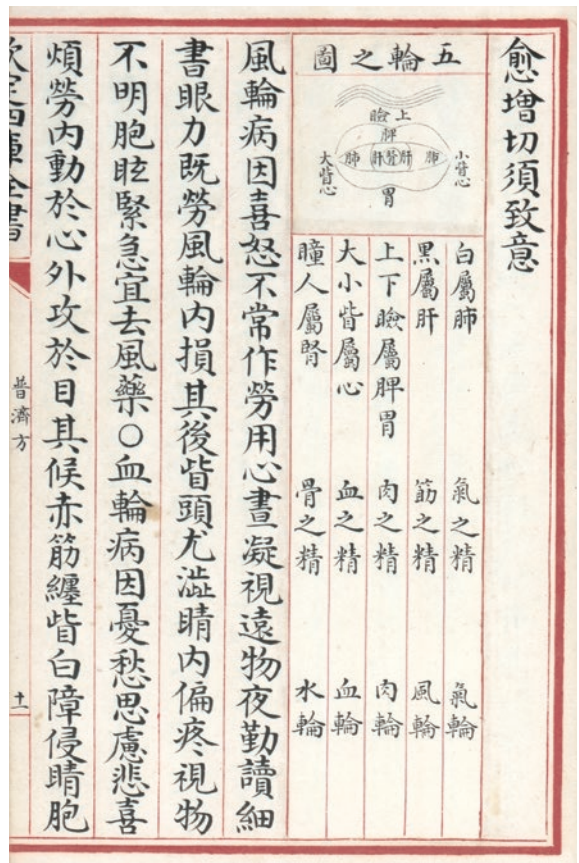 愈增切須致意
五輪之圖
上瞼
脾
小眥心
肺 肝 腎 肝 肺
大眥心
胃
白屬肺 氣之精 氣輪
黑屬肝 筋之精 風輪
上下瞼屬脾胃 肉之精 肉輪
大小眥屬心 血之精 血輪
瞳人屬腎 骨之精 水輪
風輪病因喜怒不常作勞用心晝凝視遠物夜勤讀細
書眼力既勞風輪內損其後眥頭尤澁睛內偏疼視物
不明胞眩緊急宜去風藥○血輪病因憂愁思慮悲喜
煩勞內動於心外攻於目其候赤筋纏眥白障侵睛胞
欽定四庫全書
普濟方
十一